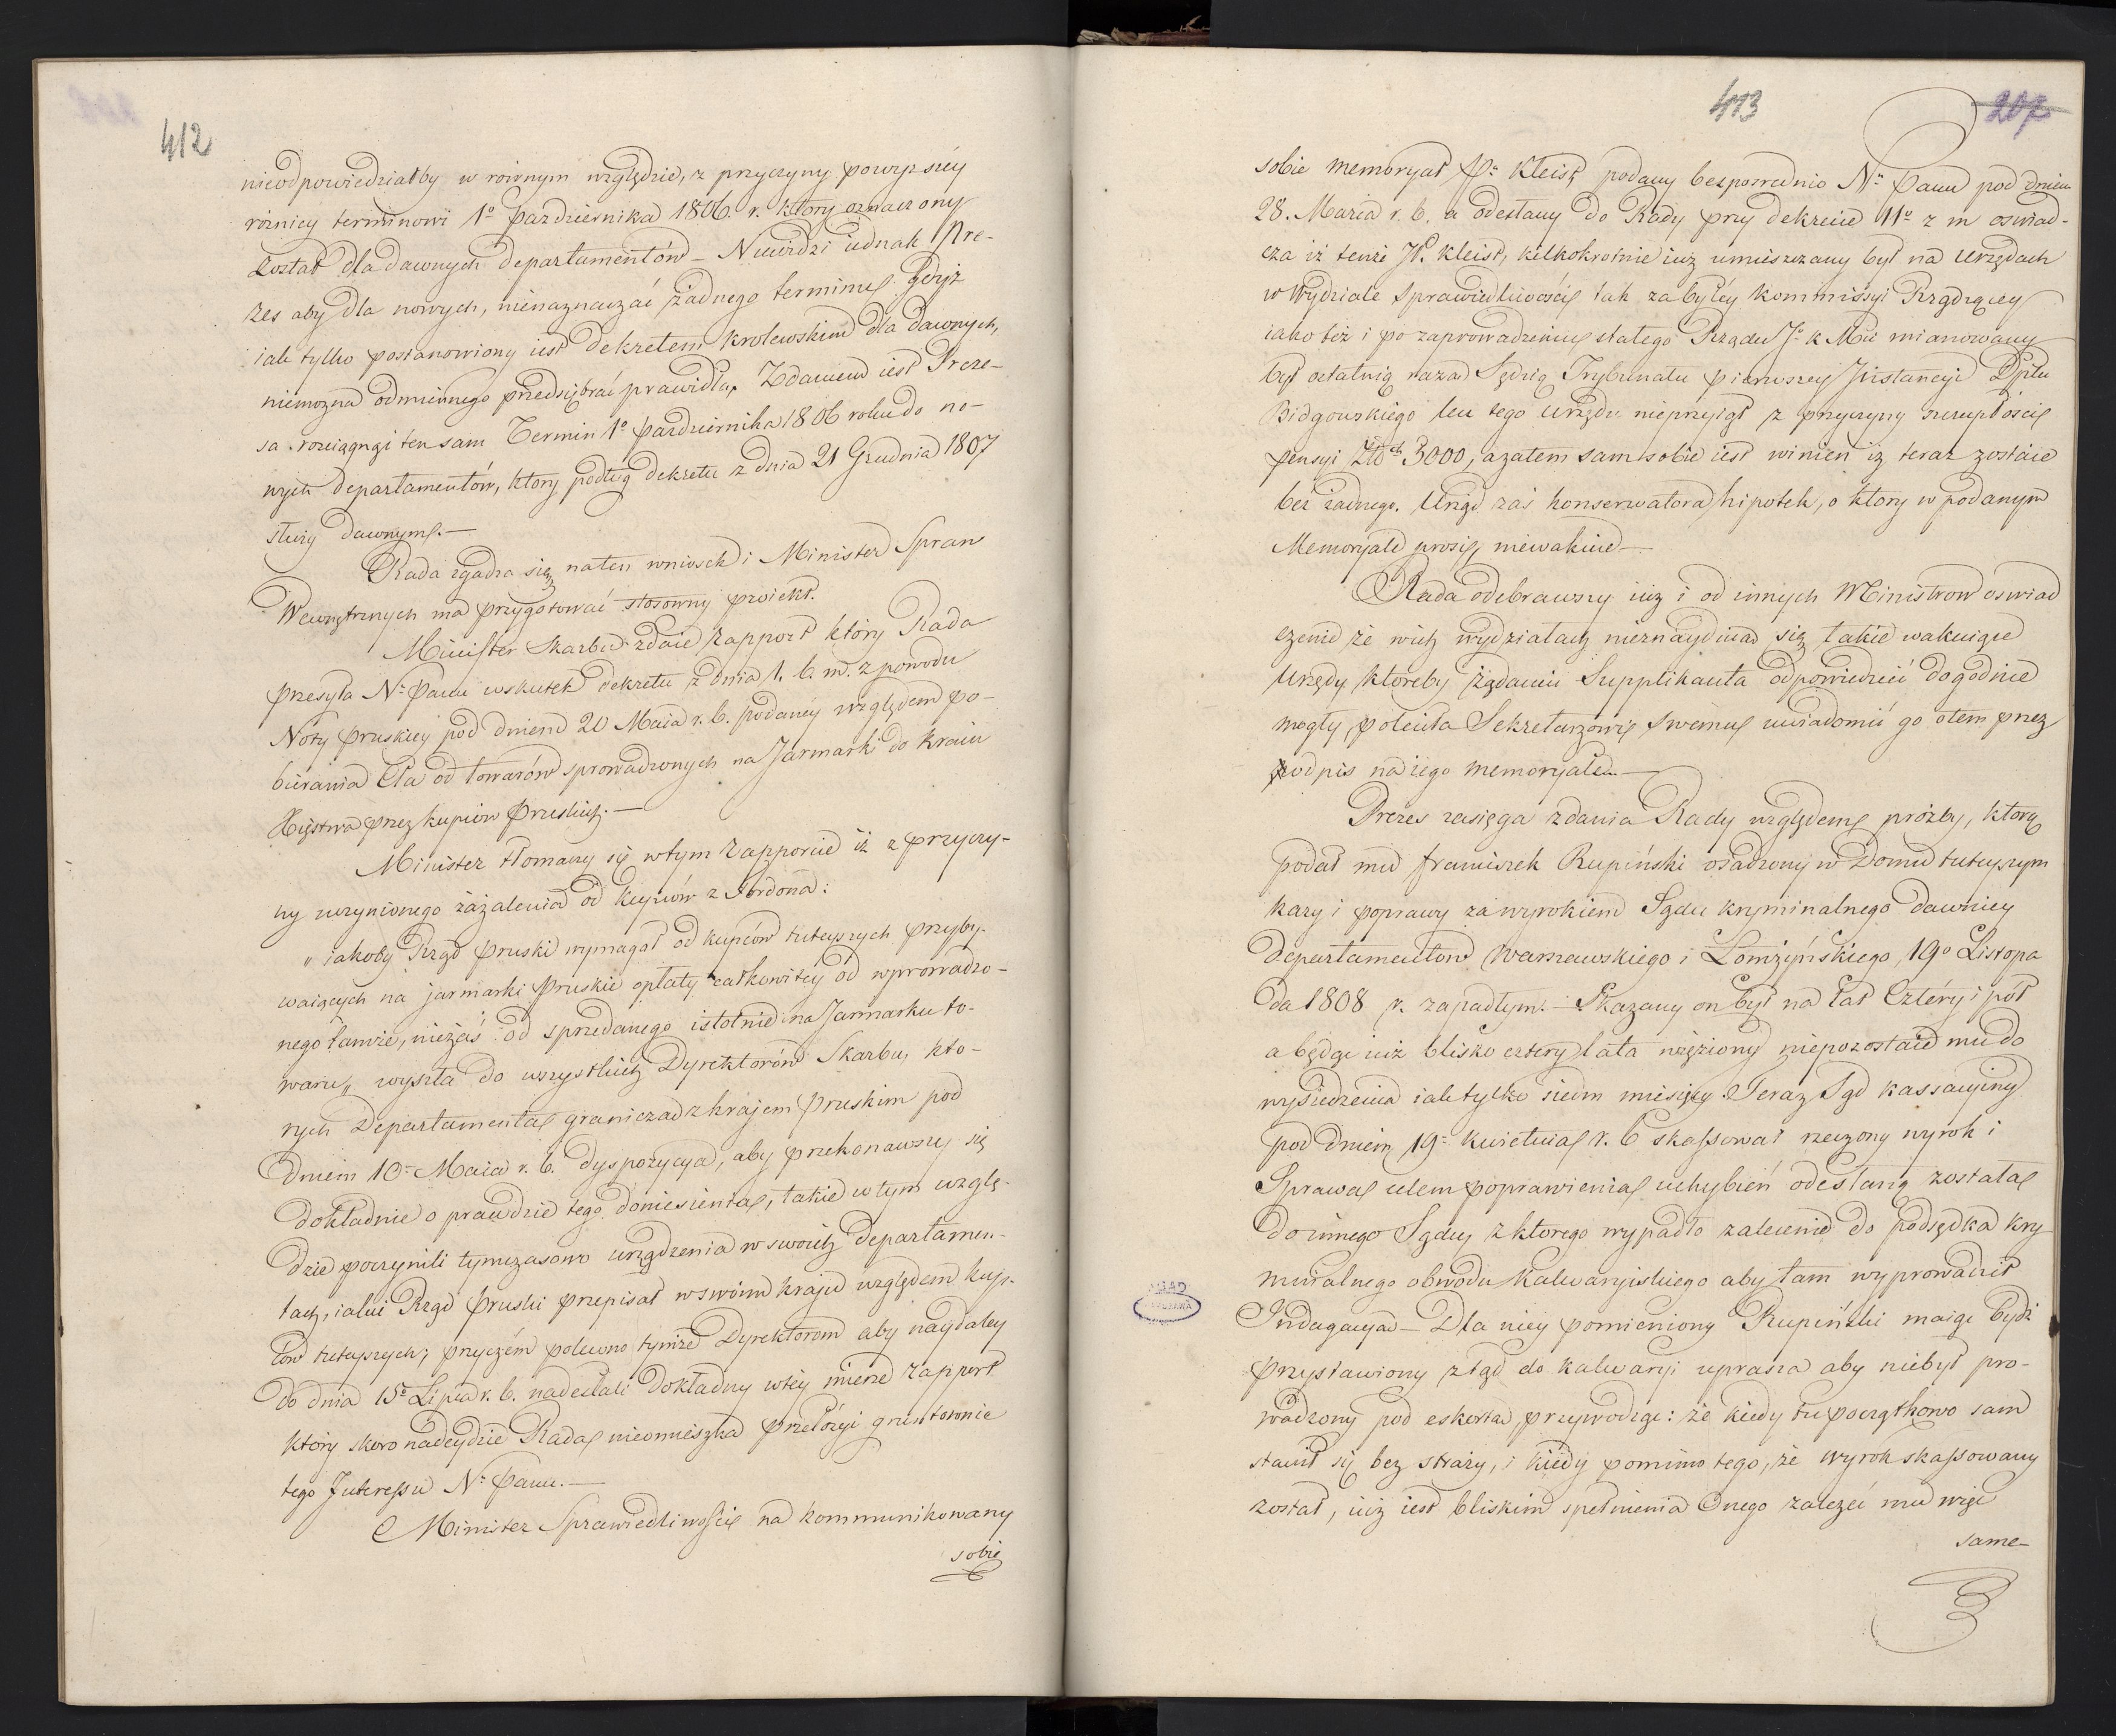 412
nieodpowiedziałby w rownym względzie, z przyczyny powyższéy
rożnicy terminowi 1º Października 1806. r. ktory oznaczony
został dla dawnych departamentów – Niewidzi iednak Pre-
zes aby dla nowych, nienaznaczać żadnego terminu gdyż
iak tylko postanowiony iest dekretem Krolewskim dla dawnych,
niemożna odmiennego przedsiębrać prawidła, Zdaniem iest Preze-
sa rozciągnąć ten sam Termin 1º Października 1806 roku do no-
wych departamentów, ktory podług dekretu z dnia 21 Grudnia 1807
służy dawnym. –
Rada zgadza się na ten wniosek i Minister Spraw
Wewnętrznych ma przygotować stosowny proiekt.
Minister Skarbu zdaie Rapport który Rada
przesyła N: Panu wskutek dekretu z dnia 1. b. m. z powodu
Noty Pruskiey pod dniem 20 Maia r. b. podaney względem po-
bierania Cła od towarów sprowadzonych na Jarmarki do kraiu
Xięstwa przez kupców Pruskich. –
Minister tłomaczy się w tym Rapporcie iż z przyczy-
ny uczynionego zażalenia od kupców z Fordona:
„ iakoby Rząd Pruski wymagał od kupców tuteyszych przyby-
waiących na jarmarki Pruskie opłaty całkowitéy od wprowadzo-
nego tamże, nie zaś od sprzedanego istotnie na Jarmarku to-
waru „ wyszła do wszystkich Dyrektorów Skarbu, kto-
rych Departamenta graniczą z krajem Pruskim pod
dniem 10 Maia r. b. dyspozycya, aby przekonawszy się
dokładnie o prawdzie tego doniesienia, takie w tym wzglę-
dzie poczynili tymczasowo urządzenia w swoich Departamen-
tach, iakie Rząd Pruski przepisał w swoim kraju względem kup-
ców tuteyszych; przyczém polecono tymże Dyrektorom aby naydaley
do dnia 15º Lipca r. b. nadesłali dokładny w téy mierze Rapport
który skoro nadeydzie Rada nieomieszka przełożyć gruntownie
tego Interessu N: Panu. –
Minister Sprawiedliwości na kommunikowany
sobie
413 207
sobie memoryał P: Kleist podany bezpośrednio N: Panu pod dniem
28. Marca r. b. a odesłany do Rady przy dekrecie 11º z m oswiad-
cza iż tenże JP. Kleist, kilkokrotnie iuż umieszczany był na Urzędach
w Wydziale Sprawiedliwości tak za byłéy Kommissyi Rządzącey
iako też i po zaprowadzeniu stałego Rządu J: K Mci mianowany
był ostatnią razą Sędzią Trybunału Pierwszey Jnstancyi Dptu
Bidgowskiego lecz tego urzędu nieprzyiął z przyczyny szczupłości
pensyi Złch 3000, a zatem sam sobie iest winien iż teraz zostaie
bez żadnego. Urząd zaś konserwatora hipotek, o ktory w podanym
Memoryale prosi, niewakuie –
Rada odebrawszy iuż i od innych Ministrow oswiad
czenie że w ich wydziałach nieznayduią się takie wakuiące
Urzędy ktoreby żądaniu Supplikanta odpowiedzieć dogodnie
mogły, poleciła Sekretarzowi swemu uwiadomić go o tem przez
podpis na iego memoryale. –
Prezes zasięga zdania Rady względem prożby, ktorą
podał mu Franciszek Rupiński osadzony w Domu tuteyszym
kary i poprawy za wyrokiem Sądu kryminalnego dawniey
Departamentow Warszawskiego i Łomżyńskiego, 19º Listopa
da 1808 r. zapadłym. – Skazany on był na lat Cztéry i pół
a będąc iuż blisko cztery lata więziony niepozostaie mu do
wysiedzenia iak tylko siedm miesięcy. Teraz Sąd kassacyiny
pod dniem 19: Kwietnia r. b skassował rzeczony wyrok i
Sprawa celem poprawienia uchybień odesłaną została
do innego Sądu, z ktorego wypadło zalecenie do Podsędka kry
minalnego obwodu kalwaryiskiego aby tam wyprowadził
Indagacyą – Dla niey pomieniony Rupiński maiąc bydź
przystawiony ztąd do kalwaryi uprasza aby niebył pro-
wadzony pod eskortą, przywodząc: że kiedy tu początkowo sam
stawił się bez straży, i kiedy pomimo tego, że wyrok skassowany
został, iuż iest bliskim spełnienia Onego zależeć mu więc
same-